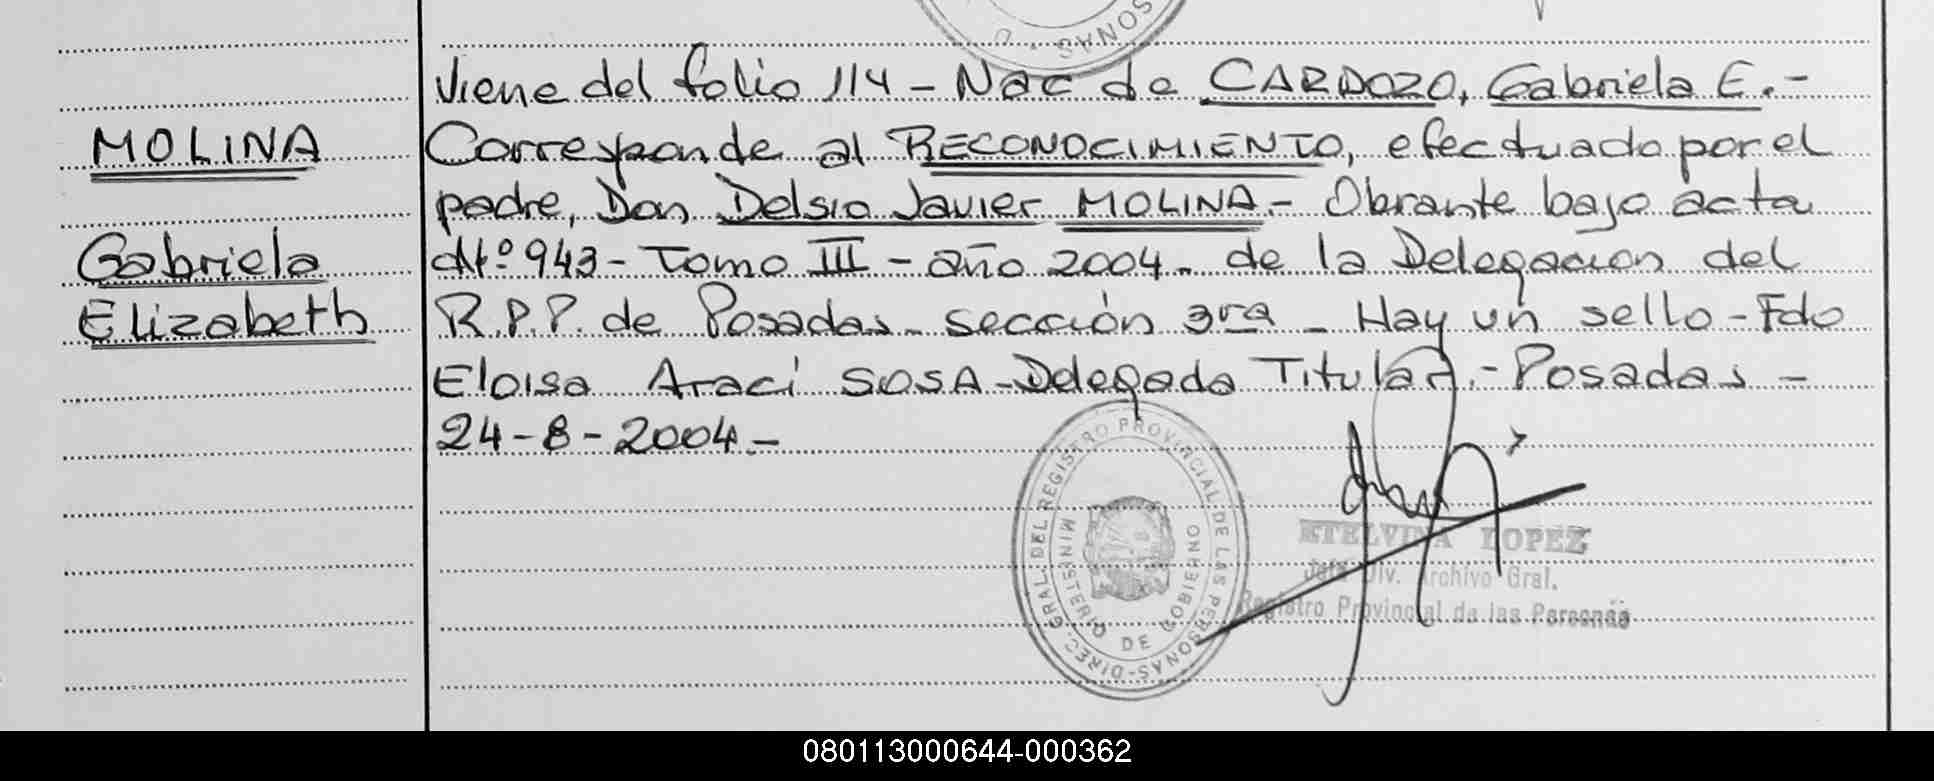 SONAS D
MOLINA
Gabriela
Elizabeth
Viene del folio 114 - Nac de CARDOZO, Gabriela E. -
Corresponde al RECONOCIMIENTO, efectuado por el
padre, Don Delsio Javier MOLINA. - Obrante bajo acta
Nº 943 - Tomo III - año 2004. de la Delegacion del
R.P.P. de Posadas - sección 3ra - Hay un sello - Fdo
Eloisa Araci SOSA - Delegada Titular. - Posadas -
24-8-2004. -
DIREC. GRAL. DEL REGISTRO PROVINCIAL DE LAS PERSONAS -
MINISTERIO DE GOBIERNO
ETELVINA LOPEZ
Jefe Div. Archivo Gral.
Registro Provincial de las Personas
080113000644-000362